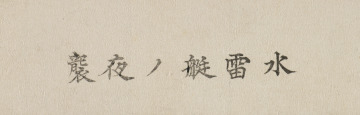 水雷艇ノ夜襲